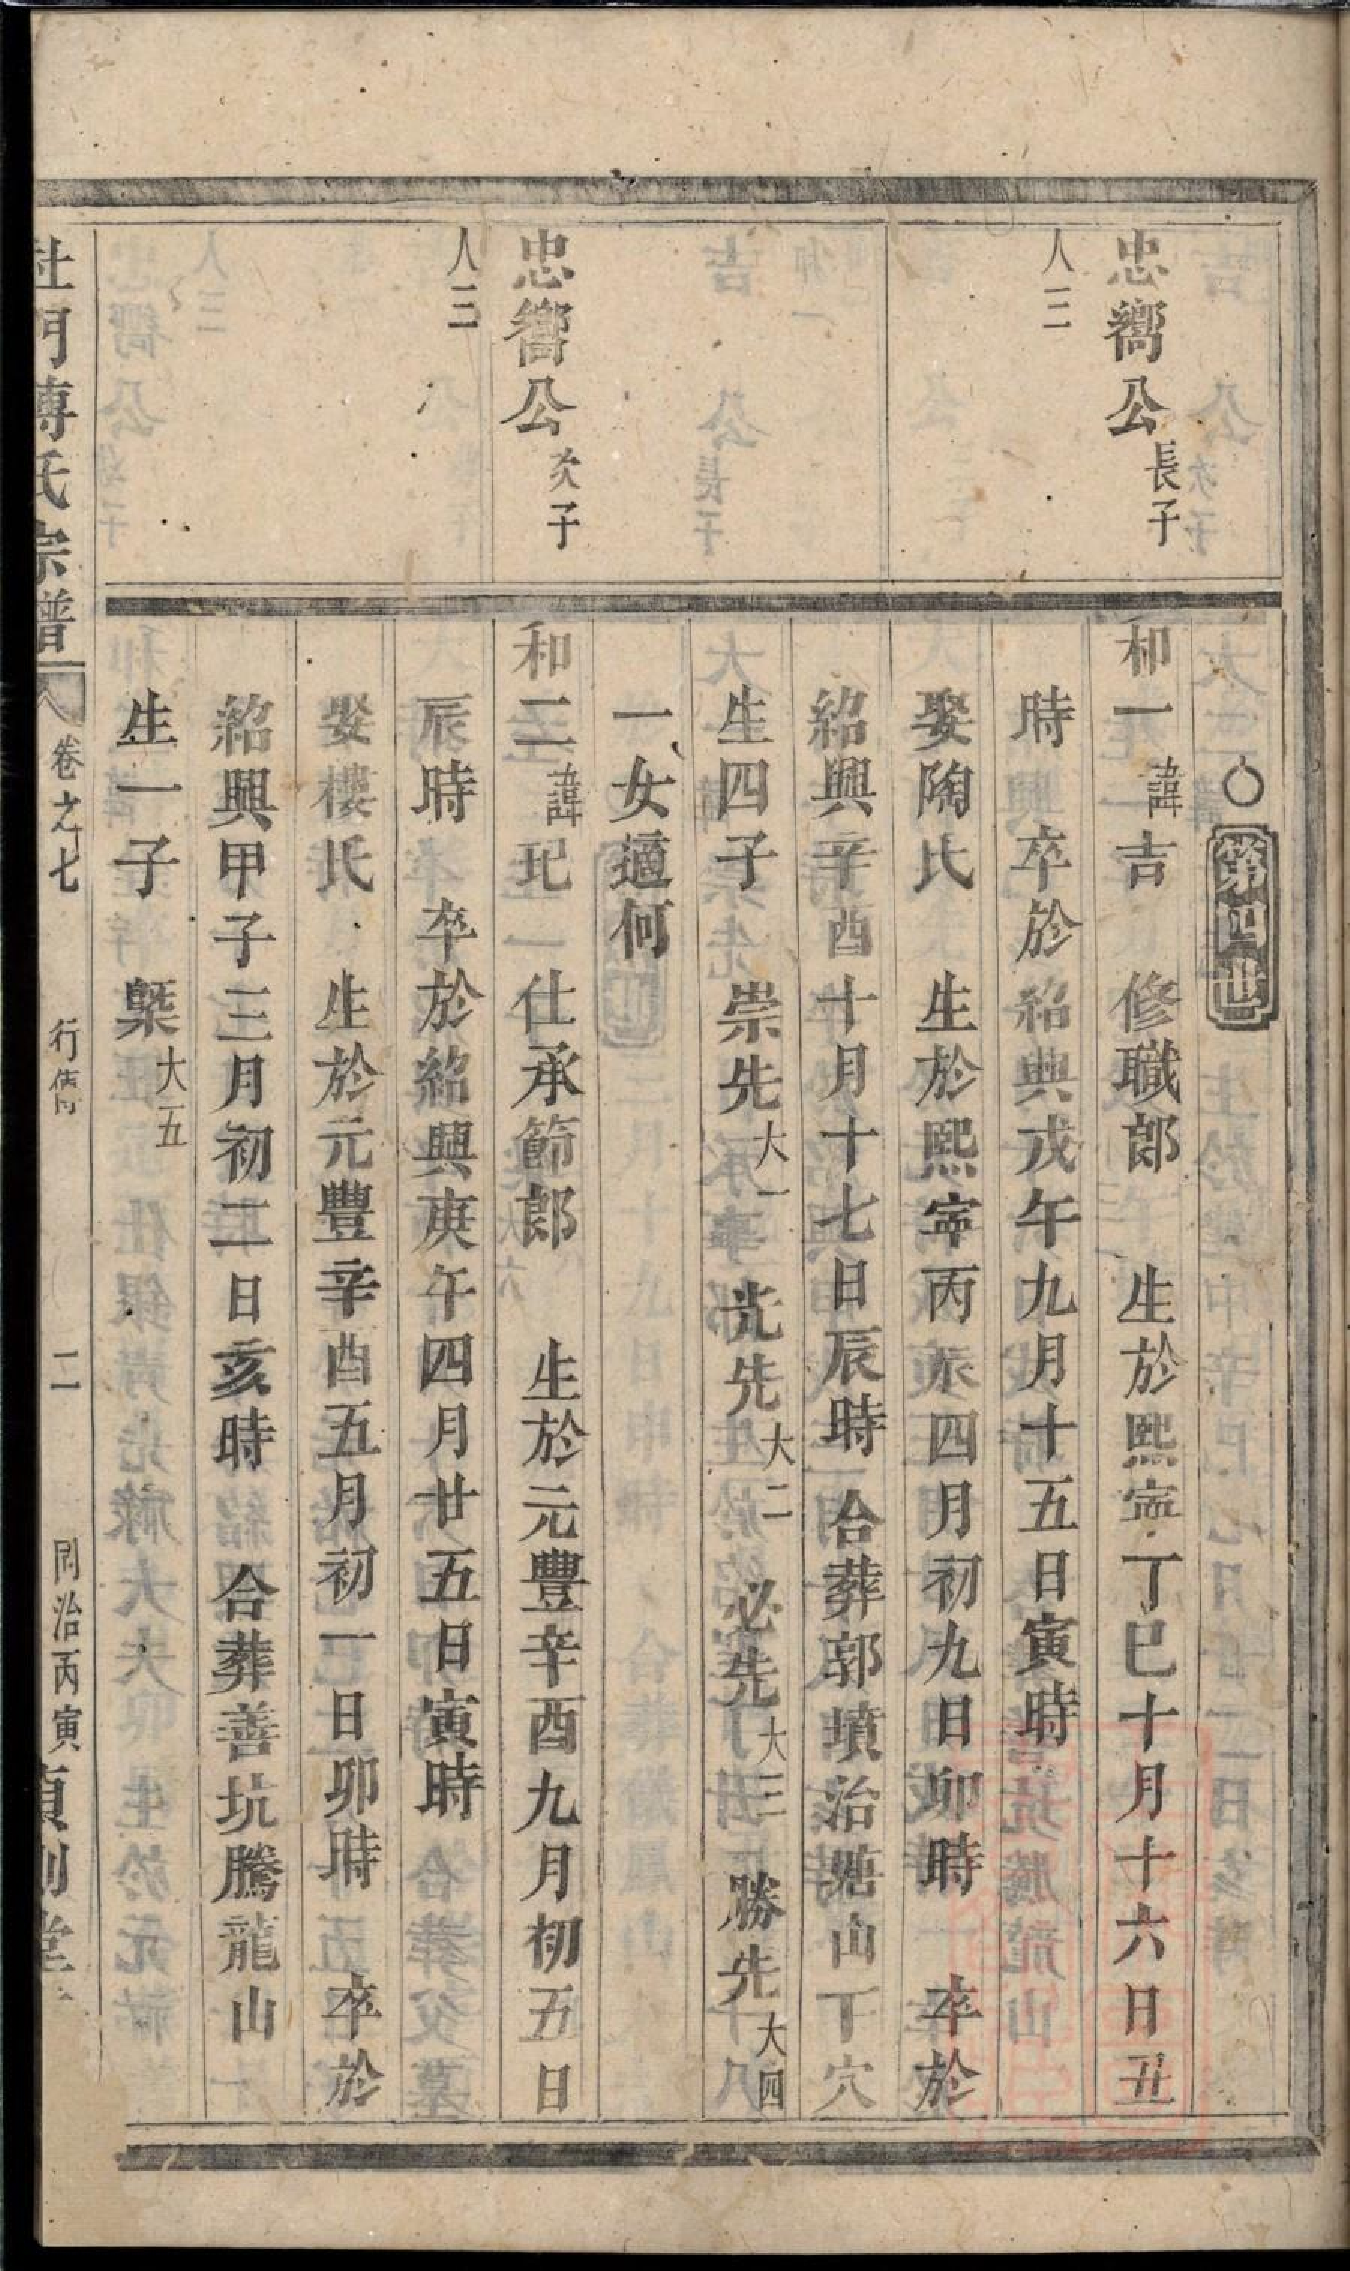 ○第四世
忠嚮公長子
人三
和一諱吉 修職郎 生於熙寧丁巳十月十六日丑
時 卒於紹興戊午九月十五日寅時
娶陶氏 生於熙寧丙辰四月初九日卯時 卒於
紹興辛酉十月十七日辰時 合葬郭墳治塘山丁穴
生四子 崇先大一 光先大二 必先大三 勝先大四
一女適何
忠嚮公次子
人三
和二諱玘 仕承節郎 生於元豐辛酉九月初五日
辰時 卒於紹興庚午四月廿五日寅時
娶樓氏 生於元豐辛酉五月初一日卯時 卒於
紹興甲子三月初二日亥時 合葬善坑騰龍山
生一子 槩大五
杜門傅氏宗譜 卷之七 行傳 二 同治丙寅